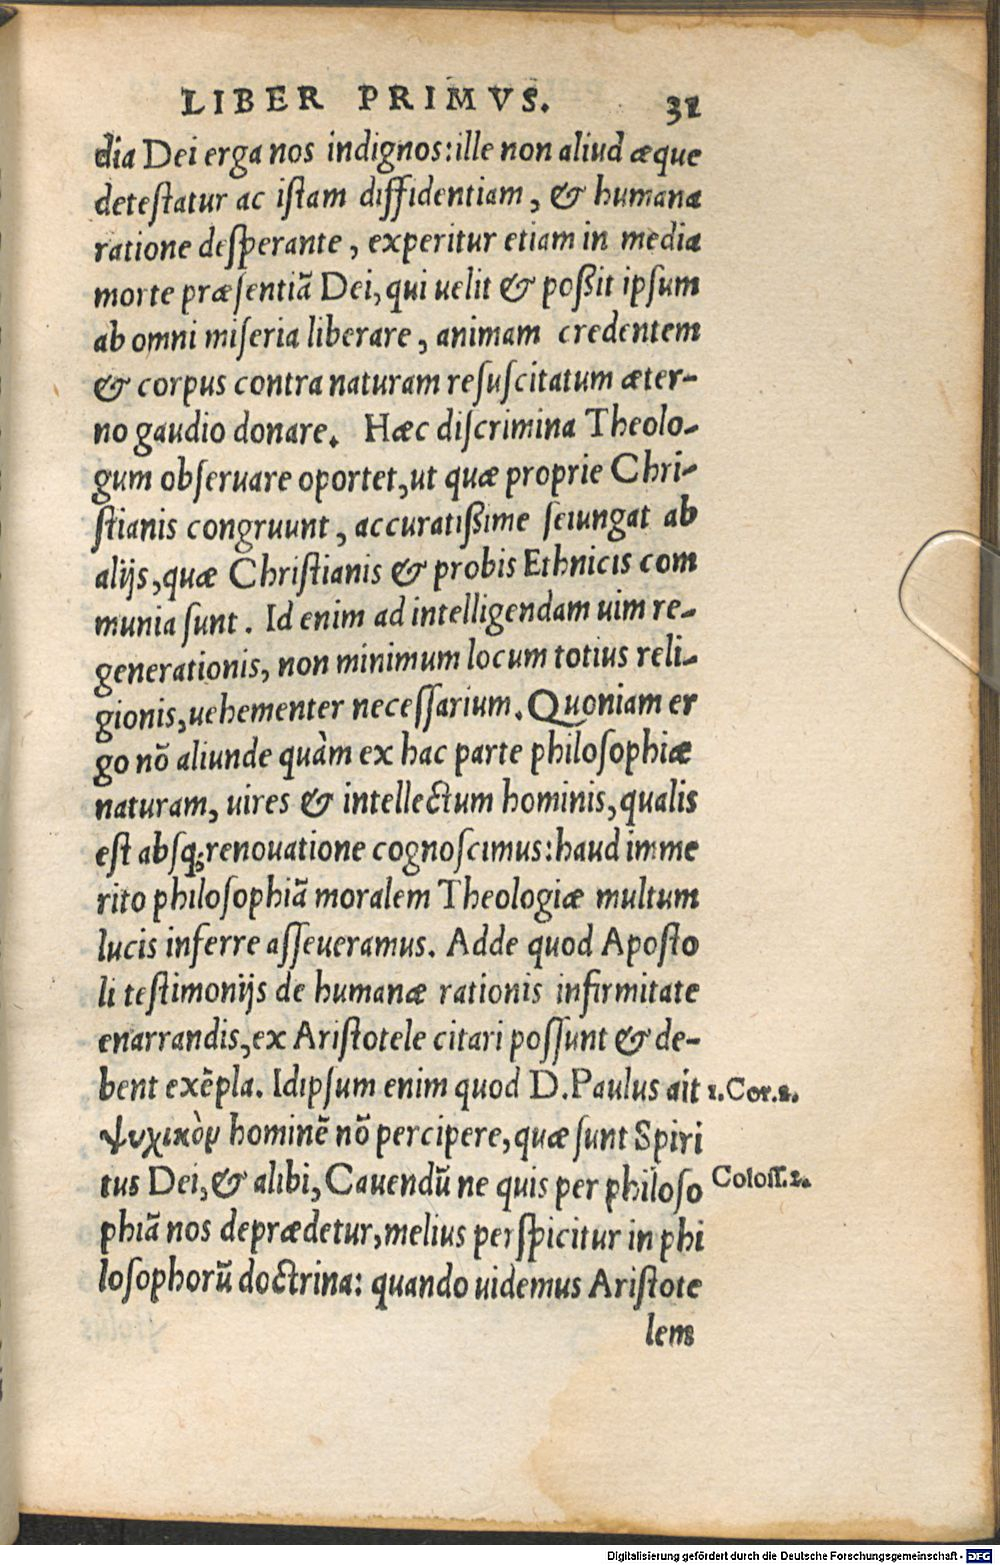 LIBER PRIMVS. 31
dia Dei erga nos indignos: ille non aliud æque
detestatur ac istam diffidentiam, & humana
ratione desperante, experitur etiam in media
morte præsentiã Dei, qui uelit & poßit ipsum
ab omni miseria liberare, animam credentem
& corpus contra naturam resuscitatum æter-
no gaudio donare. Hæc discrimina Theolo-
gum obseruare oportet, ut quæ proprie Chri-
stianis congruunt, accuratißime seiungat ab
alijs, quæ Christianis & probis Ethnicis com
munia sunt. Id enim ad intelligendam uim re-
generationis, non minimum locum totius reli-
gionis, uehementer necessarium. Quoniam er
go nõ aliunde quàm ex hac parte philosophiæ
naturam, uires & intellectum hominis, qualis
est absq; renouatione cognoscimus: haud imme
rito philosophiã moralem Theologiæ multum
lucis inferre asseueramus. Adde quod Aposto
li testimonijs de humanæ rationis infirmitate
enarrandis, ex Aristotele citari possunt & de-
bent exẽpla. Idipsum enim quod D. Paulus ait 1. Cor. 2.
ψυχικὸν hominẽ nõ percipere, quæ sunt Spiri
tus Dei, & alibi, Cauendũ ne quis per philoso Coloss. 2.
phiã nos deprædetur, melius perspicitur in phi
losophorũ doctrina: quando uidemus Aristote
lem
Digitalisierung gefördert durch die Deutsche Forschungsgemeinschaft - DFG